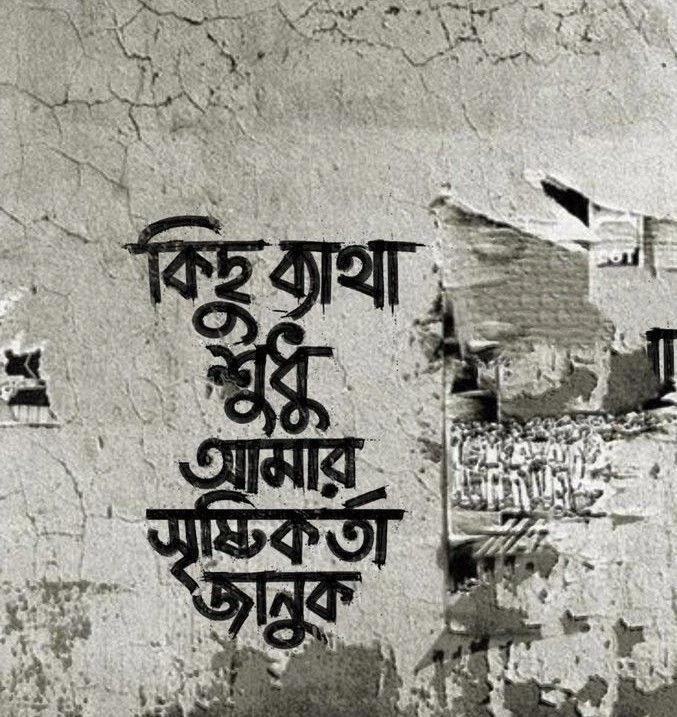 কিছু ব্যাথা
শুধু
আমার
সৃষ্টিকর্তা
জানুক